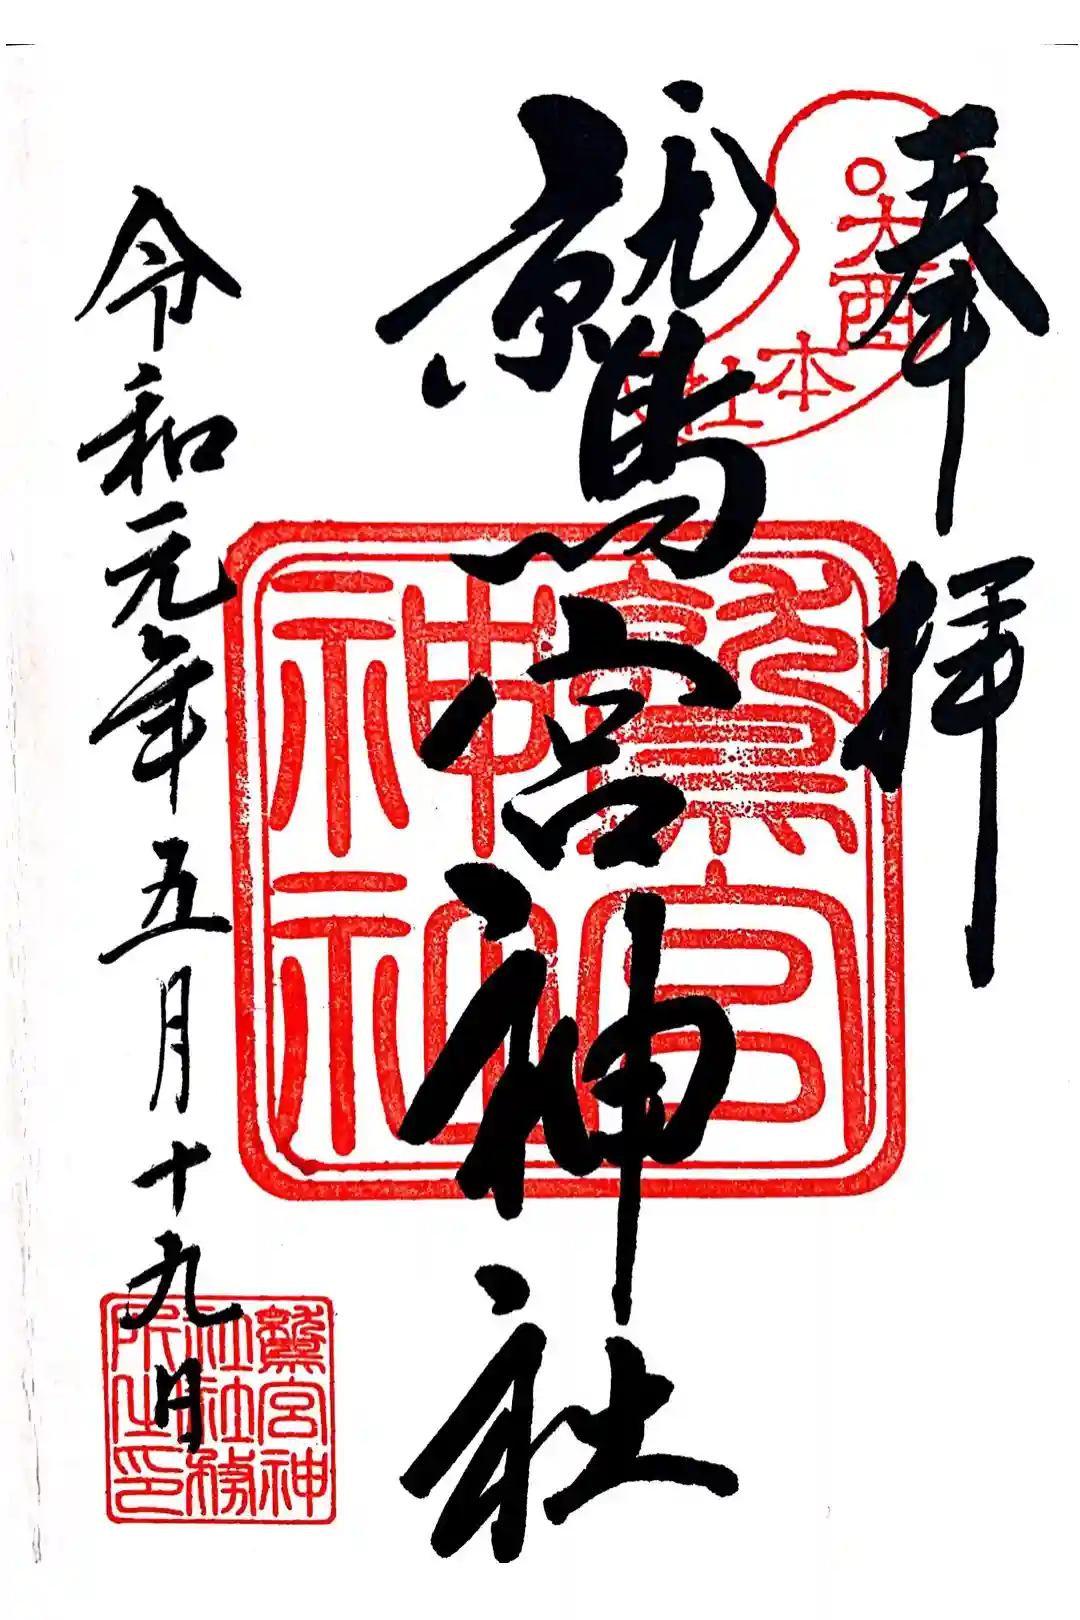 奉拝
大酉本社
鷲宮神社
鷲宮神社
令和元年五月十九日
鷲宮神社社務所之印